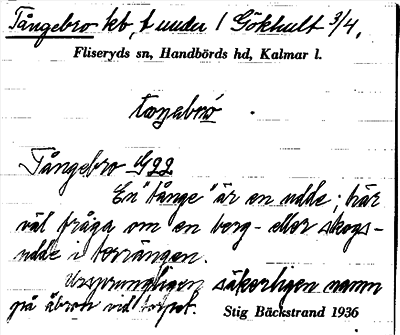 Tångebro kb, t under 1 Gökhult 3/4,
Fliseryds sn, Handbörds hd, Kalmar l.
tåŋebró .
Tångebro G 22
En "tånge" är en udde; här
väl fråga om en berg- eller skogs-
udde i terrängen.
Ursprungligen säkerligen namn
på åbron vid torpet.
Stig Bäckstrand 1936